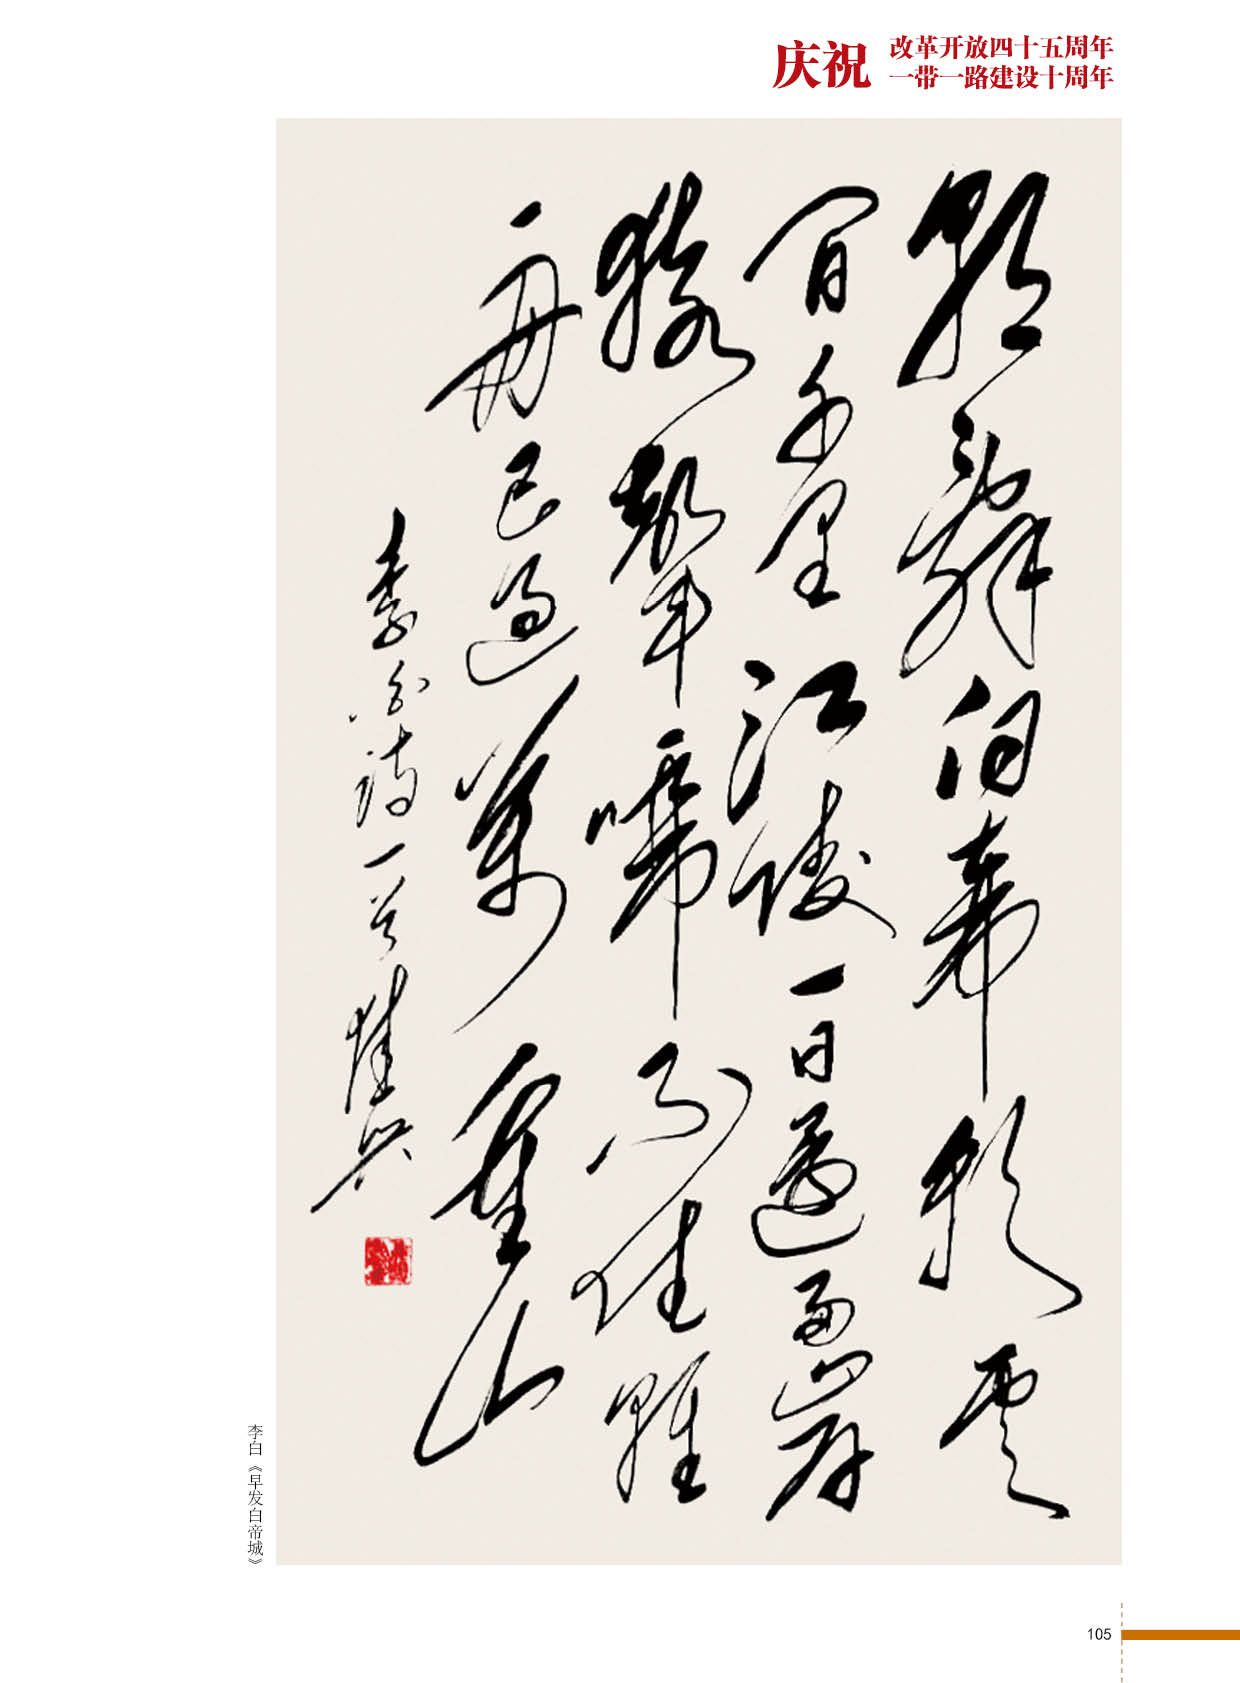 庆祝
改革开放四十五周年
一带一路建设十周年
朝辭白帝彩雲
間千里江陵一日還兩岸
猿聲啼不住輕
舟已過萬重山
李白詩一首
李白《早发白帝城》
105